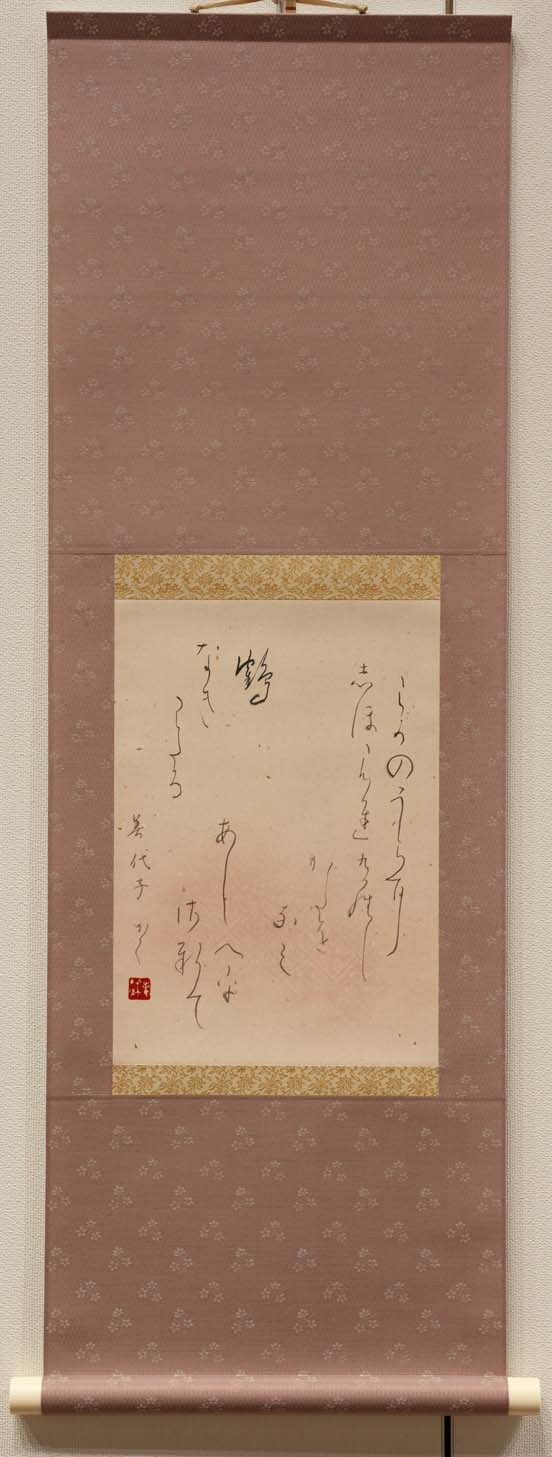 わかのうらに
志ほみちくれは
かたを
なみ
あしへを
さして
鶴
なき
わたる
美代子かく